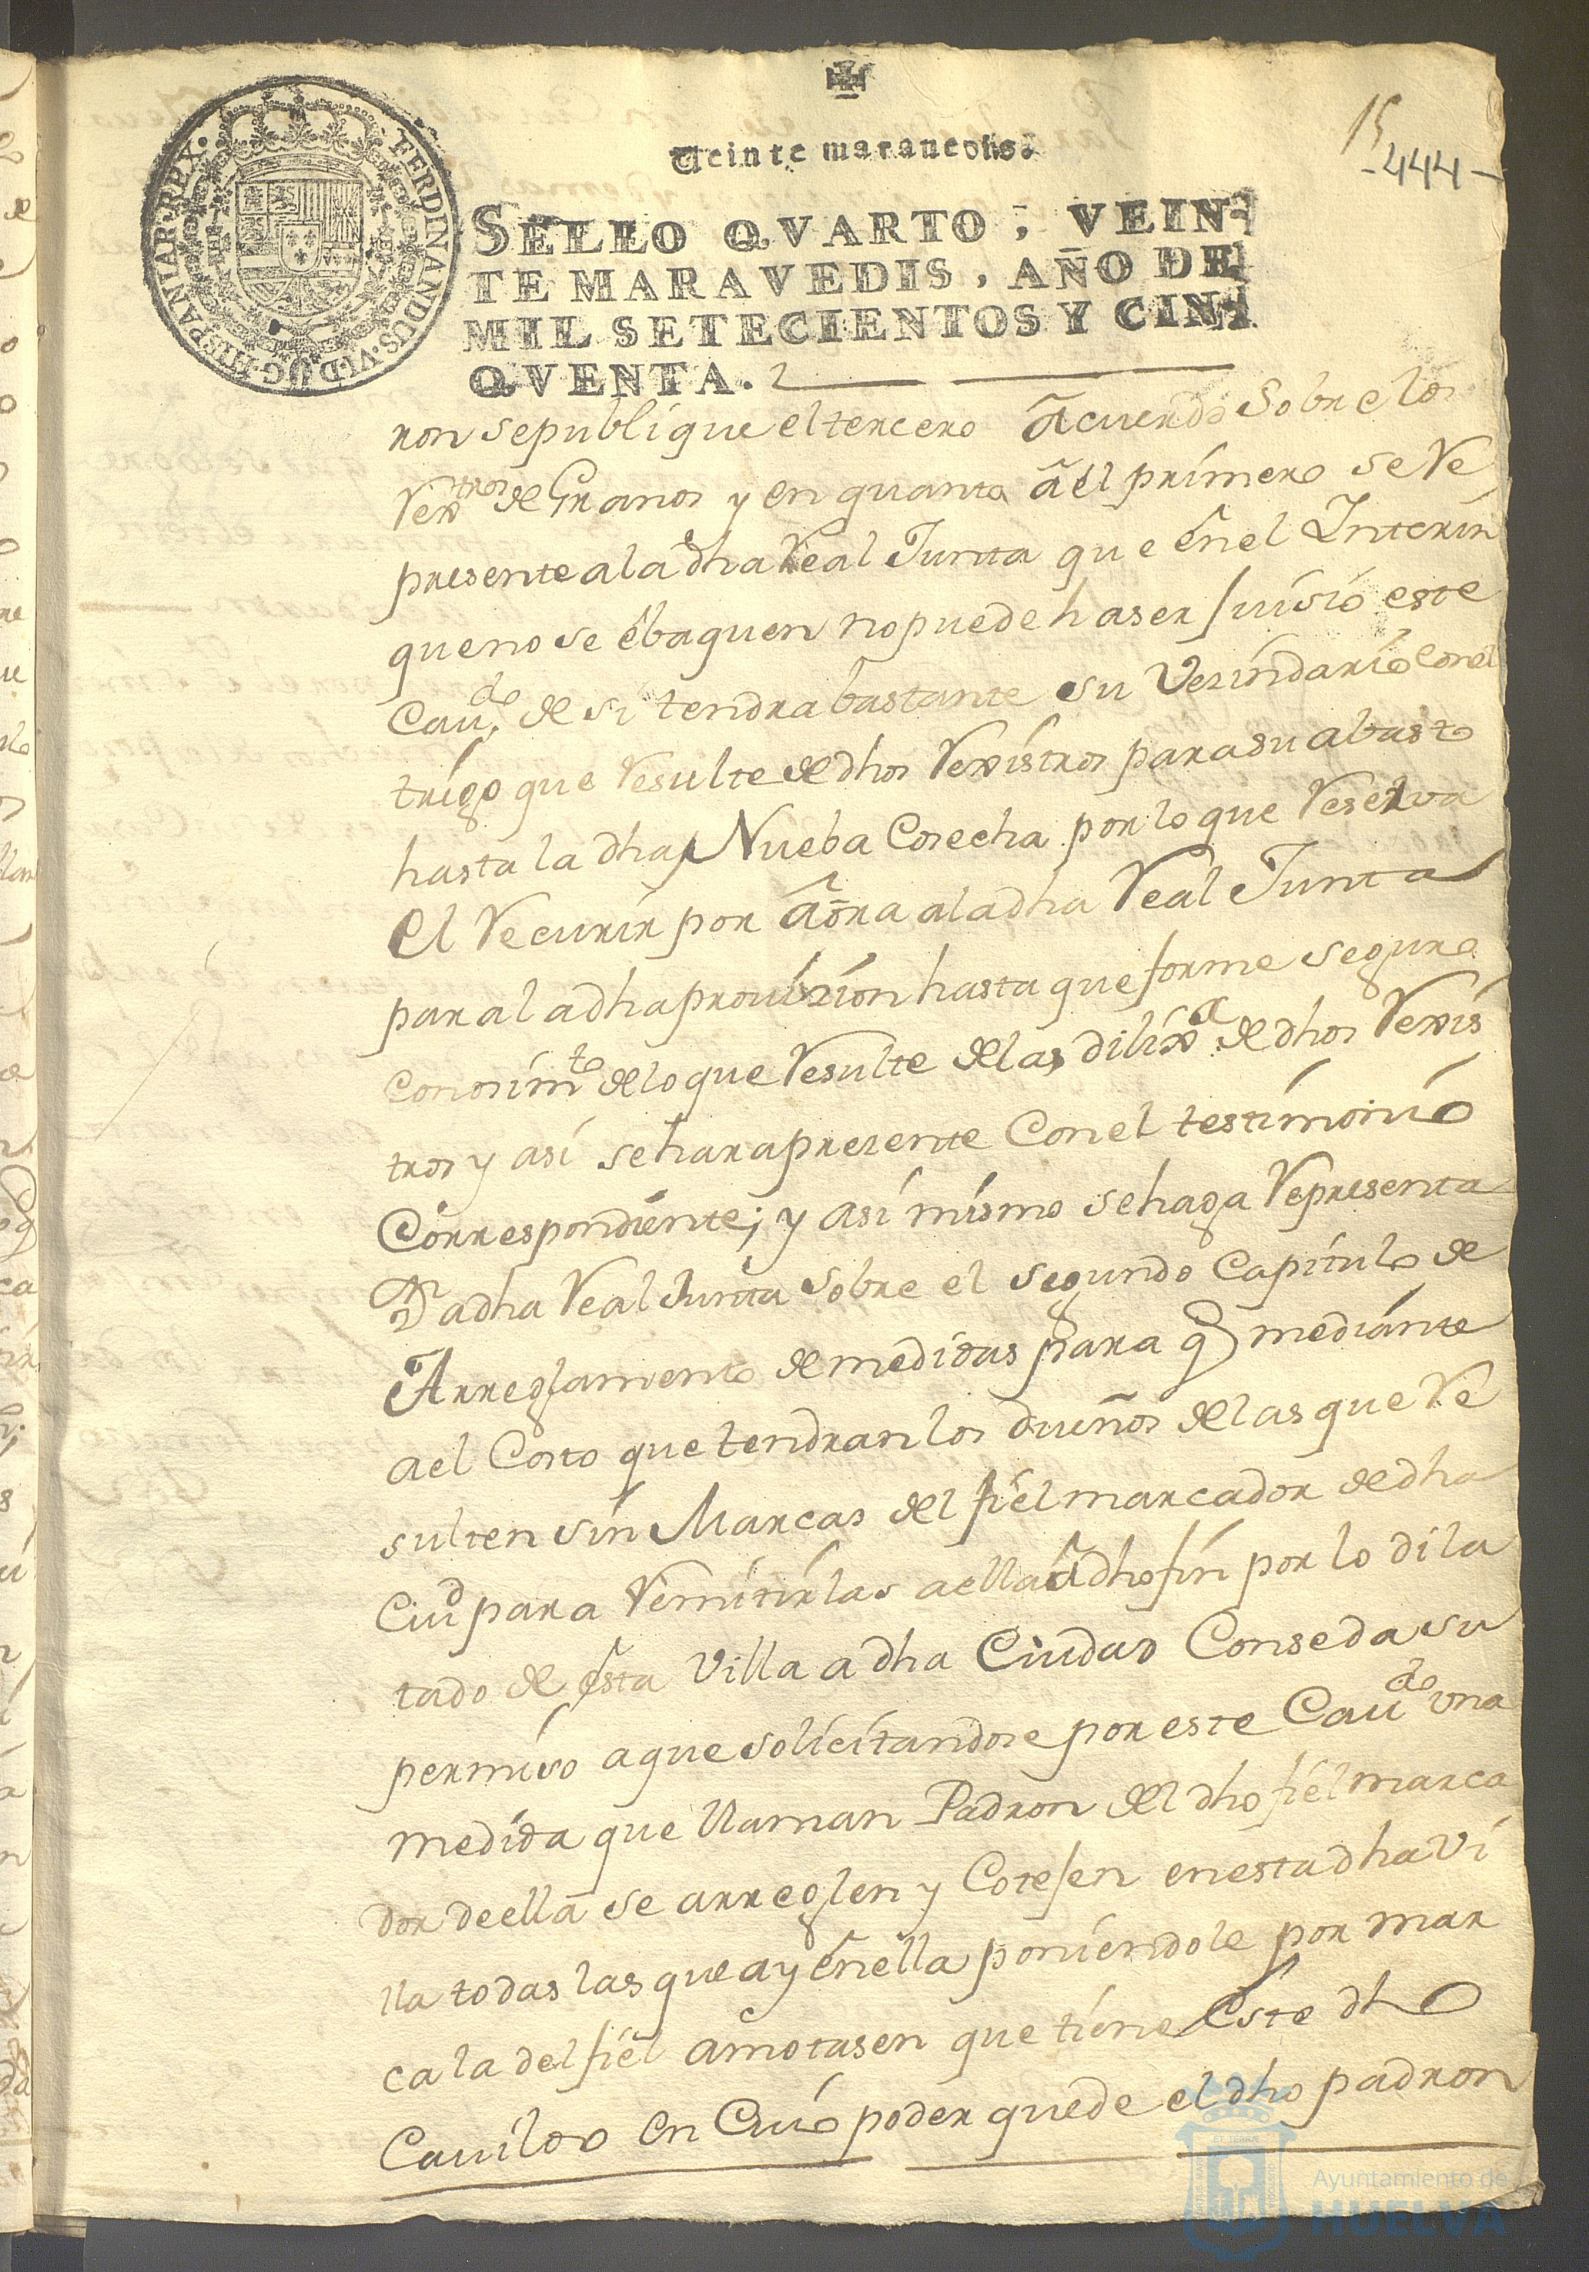 Veinte maravedis.
15
-444-
FERDINANDUS·VI·D·G·HISPANIAR·REX·
SELLO QVARTO, VEIN-
TE MARAVEDIS, AÑO DE
MIL SETECIENTOS Y CIN-
QVENTA.
ron se publique el tercero acuerdo sobre los
Rextros de Granos y en quanto a el primero se Re
presente a la dha Real Junta que en el Interin
que no se ebaquen no puede haser juisio este
Caudo de si tendra bastante su Vezindario con el
trigo que Resulte de dhos Rexistros para su abasto
hasta la dha Nueba Cosecha por lo que Reserva
el Recurir por aora a la dha Real Junta
para la dha provizion hasta que forme seguro
conosimto de lo que Resulte de las dilixas de dhos Rexis
tros y asi se hara presente Con el testimonio
Correspondiente; y asi mismo se haga Representa
on a dha Real Junta sobre el segundo Capitulo de
Arreglamento de medidas para q mediante
a el Costo que tendran los dueños de las que Re
sulten sin Marcas del fiel marcador de dha
Ciud para Remitirlas a ella a dho fin por lo dila
tado de esta Villa a dha Ciudad Conseda su
permiso a que solicitandose por este Caudo una
medida que llaman Padron del dho fiel marca
dor de ella se arreglen y Cotejen en esta dha Vi
lla todas las que ay en ella poniendole por mar
ca la del fiel amotasen que tiene Este dho
Cavildo en Cuio poder quede el dho padron
Ayuntamiento de
HUELVA